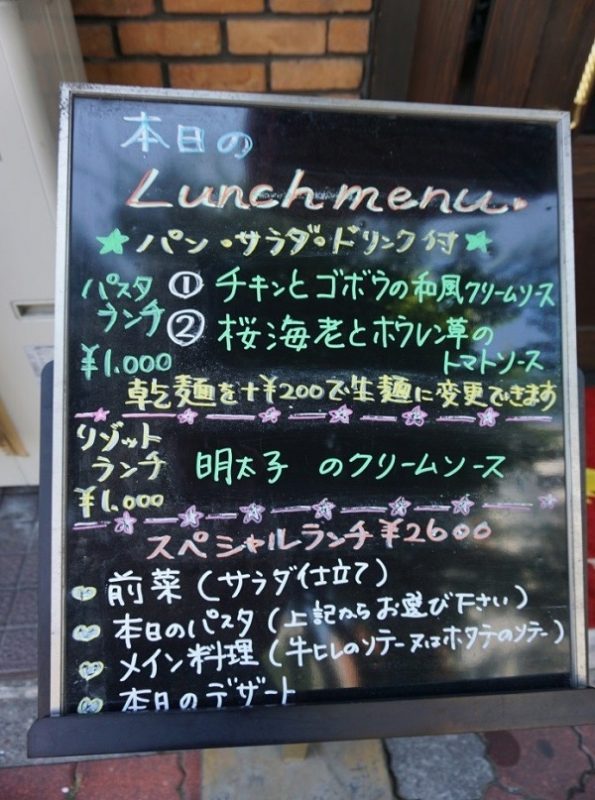 本日の
Lunch menu.
★パン・サラダ・ドリンク付★
パスタ ① チキンとゴボウの和風クリームソース
ランチ ② 桜海老とホウレン草の
¥1.000 トマトソース
乾麺を+¥200で生麺に変更できます
リゾット
ランチ 明太子 のクリームソース
¥1.000
スペシャルランチ¥2600
前菜(サラダ仕立て)
本日のパスタ(上記からお選び下さい)
メイン料理(牛ヒレのソテー又はホタテのソテー)
本日のデザート